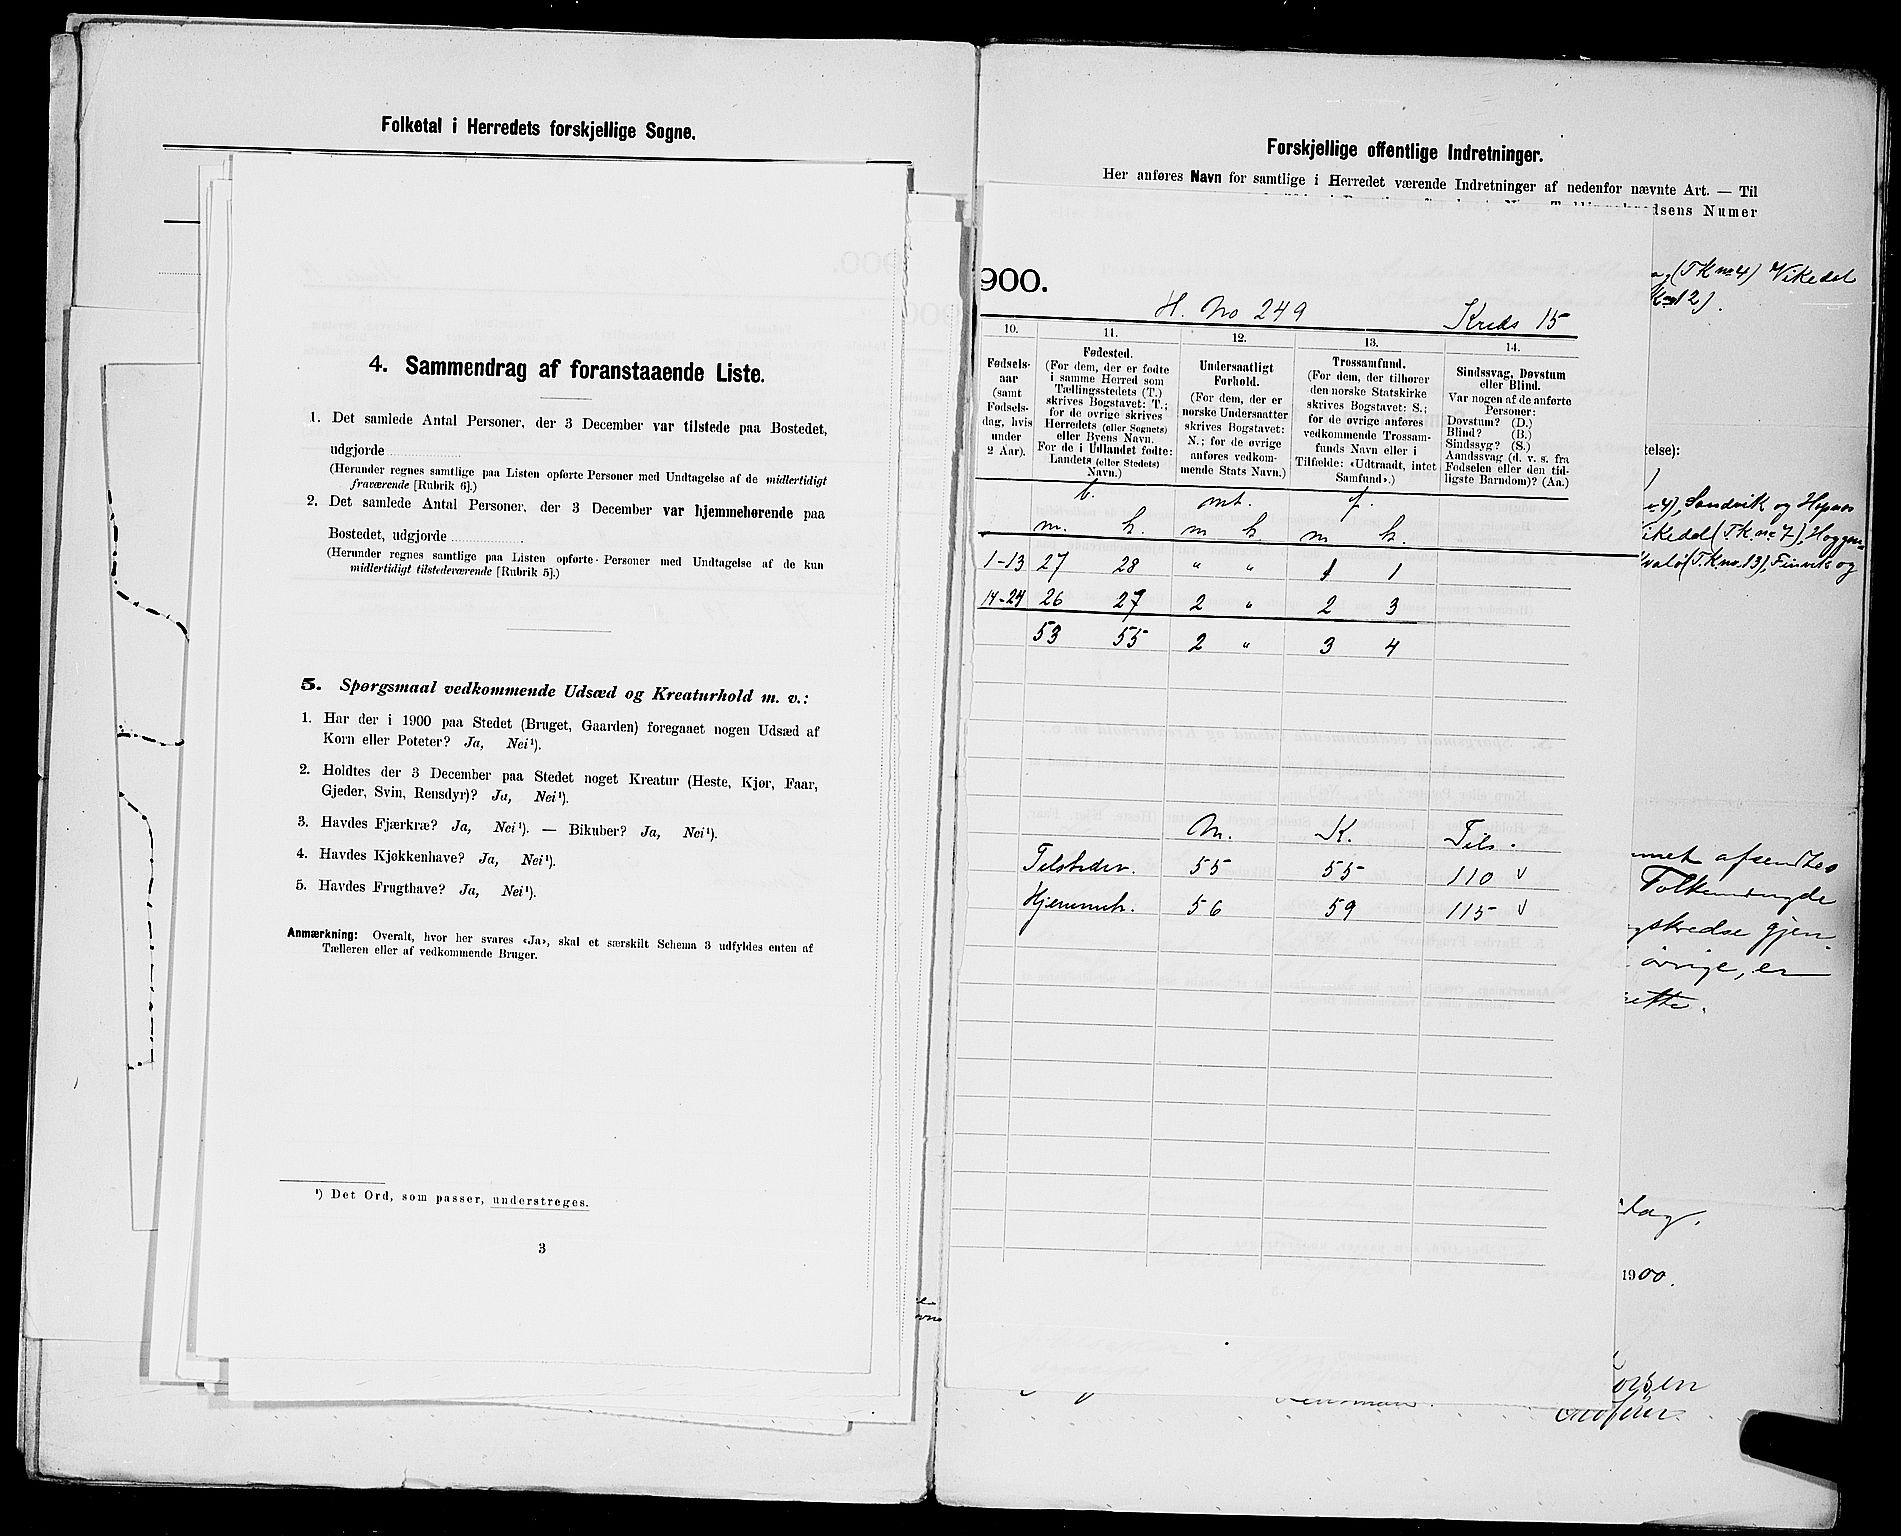 Folketal i Herredets forskjellige Sogne.
4. Sammendrag af foranstaaende Liste.
1. Det samlede Antal Personer, der 3 December var tilstede paa Bostedet,
udgjorde
(Herunder regnes samtlige paa Listen opførte Personer med Undtagelse af de midlertidigt
fraværende [Rubrik 6].)
2. Det samlede Antal Personer, der 3 December var hjemmehørende paa
Bostedet, udgjorde
(Herunder regnes samtlige paa Listen opførte Personer med Undtagelse af de kun
midlertidigt tilstedeværende [Rubrik 5].)
5. Spørgsmaal vedkommende Udsæd og Kreaturhold m. v.:
1. Har der i 1900 paa Stedet (Bruget, Gaarden) foregaaet nogen Udsæd af
Korn eller Poteter? Ja, Nei¹).
2. Holdtes der 3 December paa Stedet noget Kreatur (Heste, Kjør, Faar,
Gjeder, Svin, Rensdyr)? Ja, Nei¹).
3. Havdes Fjærkræ? Ja, Nei¹). — Bikuber? Ja, Nei¹).
4. Havdes Kjøkkenhave? Ja, Nei¹).
5. Havdes Frugthave? Ja, Nei¹).
Anmærkning: Overalt, hvor her svares «Ja», skal et særskilt Schema 3 udfyldes enten af
Tælleren eller af vedkommende Bruger.
¹) Det Ord, som passer, understreges.
3
Forskjellige offentlige Indretninger.
Her anføres Navn for samtlige i Herredet værende Indretninger af nedenfor nævnte Art. — Til
dsens Numer
(T.K. no 4) Vikedal
12).
900.
H. No 249
Kreds 15
10.
Fødsels-
aar
(samt
Fødsels-
dag, hvis
under
2 Aar).
11.
Fødested.
(For dem, der er fødte
i samme Herred som
Tællingsstedets (T.)
skrives Bogstavet: T.;
for de øvrige skrives
Herredets (eller Sognets)
eller Byens Navn.
For de i Udlandet fødte:
Landets (eller Stedets)
Navn.)
12.
Undersaatligt
Forhold.
(For dem, der er
norske Undersaatter
skrives Bogstavet:
N.; for de øvrige
anføres vedkom-
mende Stats Navn.)
13.
Trossamfund.
(For dem, der tilhører
den norske Statskirke
skrives Bogstavet: S.;
for de øvrige anføres
vedkommende Trossam-
funds Navn eller i
Tilfælde: «Udtraadt, intet
Samfund».)
14.
Sindssvag, Døvstum
eller Blind.
Var nogen af de anførte
Personer:
Døvstum? (D.)
Blind? (B.)
Sindssyg? (S.)
Aandssvag (d. v. s. fra
Fødselen eller den tid-
ligste Barndom)? (Aa.)
telse):
b. mt. f.
m. k. m k. m k.
1-13 27 28 " " 1 1
14-24 26 27 2 " 2 3
53 55 2 " 3 4
4), Sandvik og Hopnes
Vikedal (T.K. no 7), Hoggen-
(T.K. no. 13), Finvik og
M. K. Tils.
Tilstedev. 55 55 110 √
Hjemmeh. 56 59 115 √
afsendtes
Folkemængde
gskredse gjen-
øvrige, er
rette.
dag.
1900.
orsen